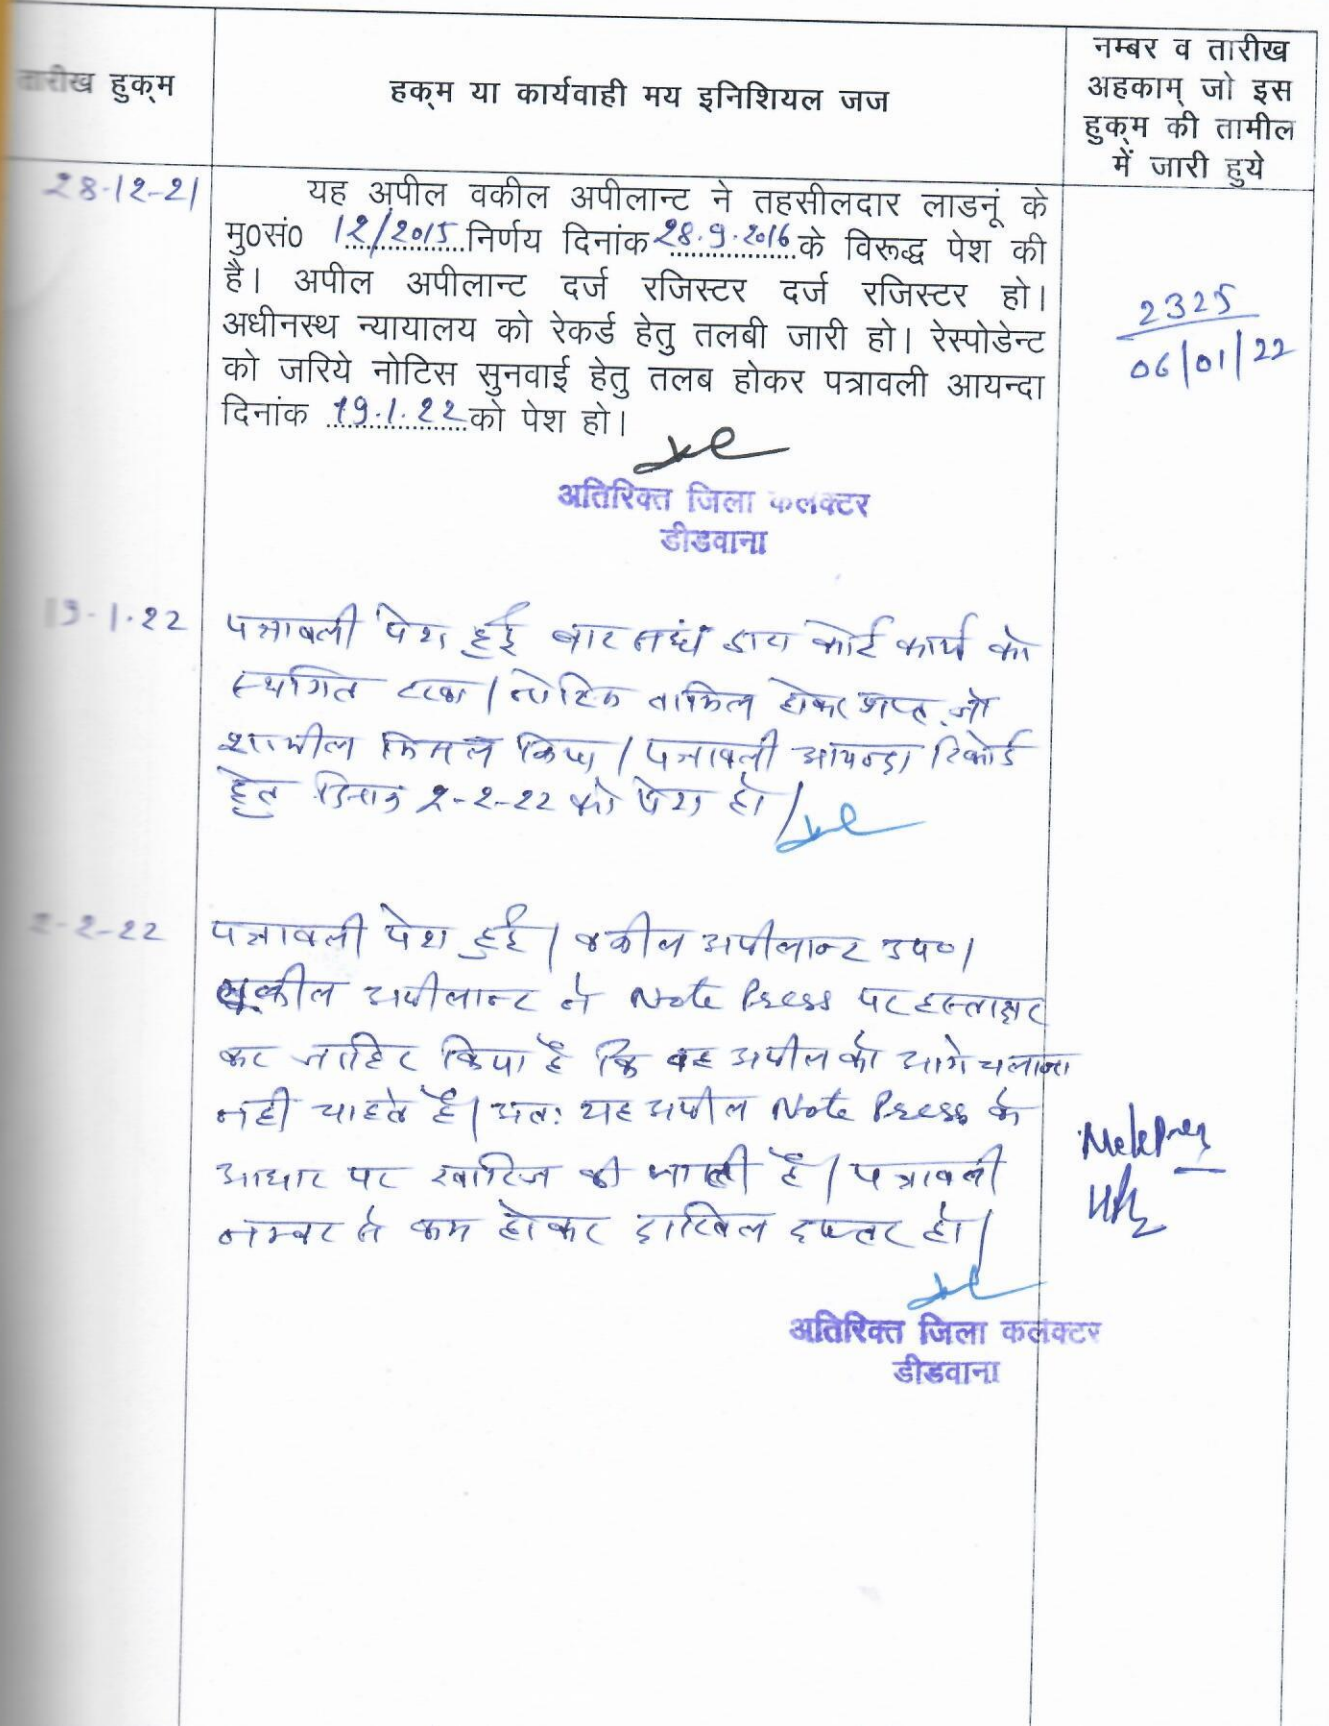 तारीख हुक्म
हक्म या कार्यवाही मय इनिशियल जज
नम्बर व तारीख
अहकाम् जो इस
हुक्म की तामील
में जारी हुये
28-12-21
यह अपील वकील अपीलान्ट ने तहसीलदार लाडनूं के
मु0सं0 12/2015 निर्णय दिनांक 28.9.2016 के विरूद्ध पेश की
है। अपील अपीलान्ट दर्ज रजिस्टर दर्ज रजिस्टर हो।
अधीनस्थ न्यायालय को रेकर्ड हेतु तलबी जारी हो। रेस्पोडेन्ट
को जरिये नोटिस सुनवाई हेतु तलब होकर पत्रावली आयन्दा
दिनांक 19.1.22 को पेश हो।
2325
06/01/22
अतिरिक्त जिला कलक्टर
डीडवाना
19-1-22
पत्रावली पेश हुई बार संघ द्वारा कोर्ट कार्य को
स्थगित रखा। नोटिस तामिल होकर प्राप्त जो
शामील मिसल किया। पत्रावली आयन्दा रिकोर्ड
हेतु दिनांक 2-2-22 को पेश हो।
2-2-22
पत्रावली पेश हुई। वकील अपीलान्ट उप०।
वकील अपीलान्ट ने Note Press पर हस्ताक्षर
कर जाहिर किया है कि वह अपील को आगे चलाना
नही चाहते है। अतः यह अपील Note Press के
आधार पर खारिज की जाती है। पत्रावली
नम्बर से कम होकर दाखिल दफ्तर हो।
अतिरिक्त जिला कलक्टर
डीडवाना